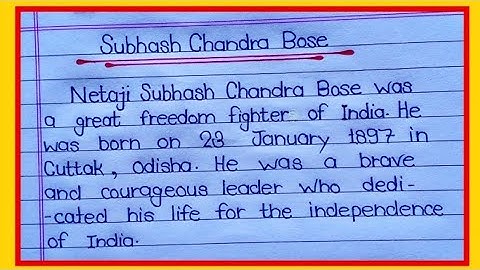 Subhash Chandra Bose
Netaji Subhash Chandra Bose was
a great freedom fighter of India. He
was born on 23 January 1897 in
Cuttak, odisha. He was a brave
and courageous leader who dedi-
-cated his life for the independence
of India.